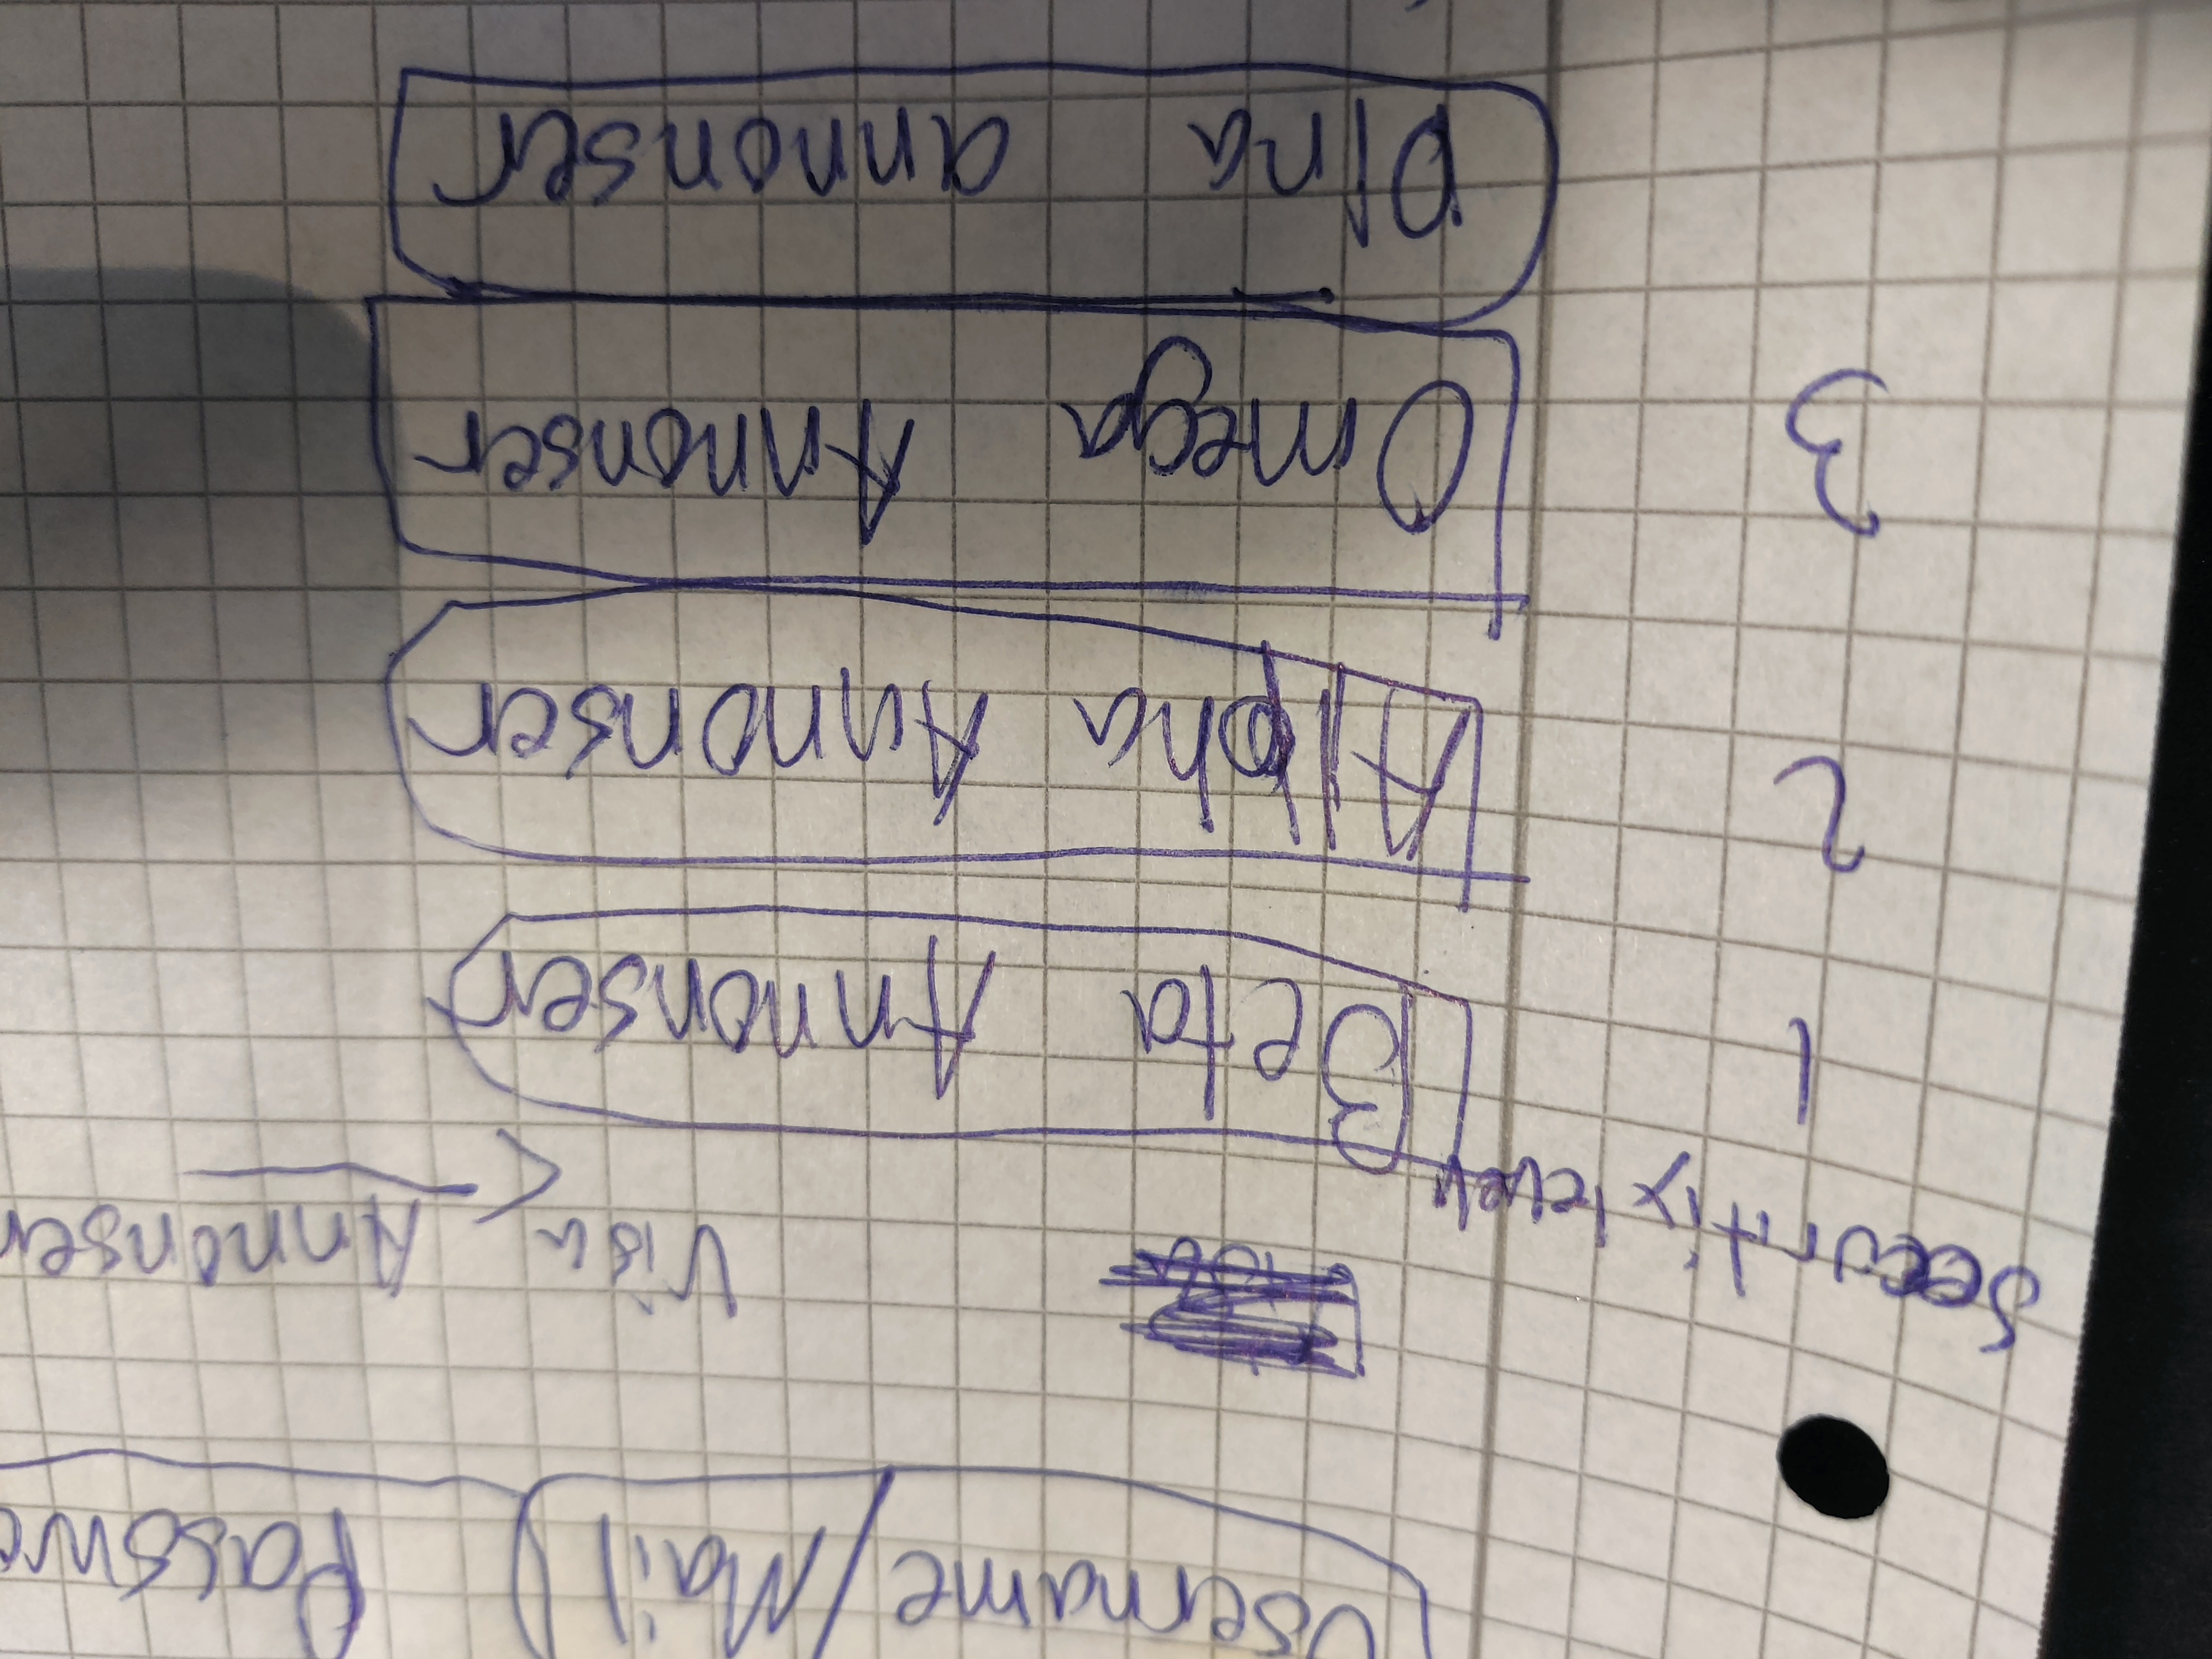 Username/Mail
Visa Annonser
Security level
1 Beta Annonser
2 Alpha Annonser
3 Omega Annonser
Dina annonser